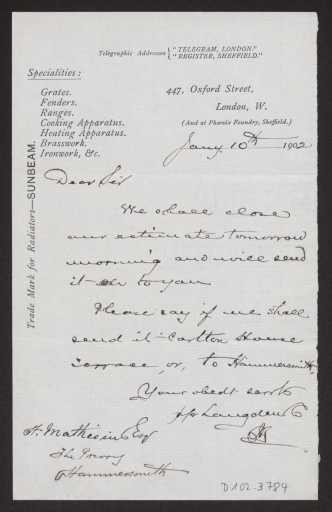 Telegraphic Addresses { "TELEGRAM, LONDON."
"REGISTER, SHEFFIELD."
Specialities:
Grates.
Fenders.
Ranges.
Cooking Apparatus.
Heating Apparatus.
Brasswork.
Ironwork, &c.
Trade Mark for Radiators—SUNBEAM.
447, Oxford Street,
London, W.
(And at Phœnix Foundry, Sheffield.)
Jany. 10th 1902
Dear Sir
We shall close
our estimate tomorrow
morning and will send
it to you
Please say if we shall
send it Carlton House
Terrace, or, to Hammersmith.
Your obedt servts
Longden & Co
The Priory
Hammersmith
D102-3784